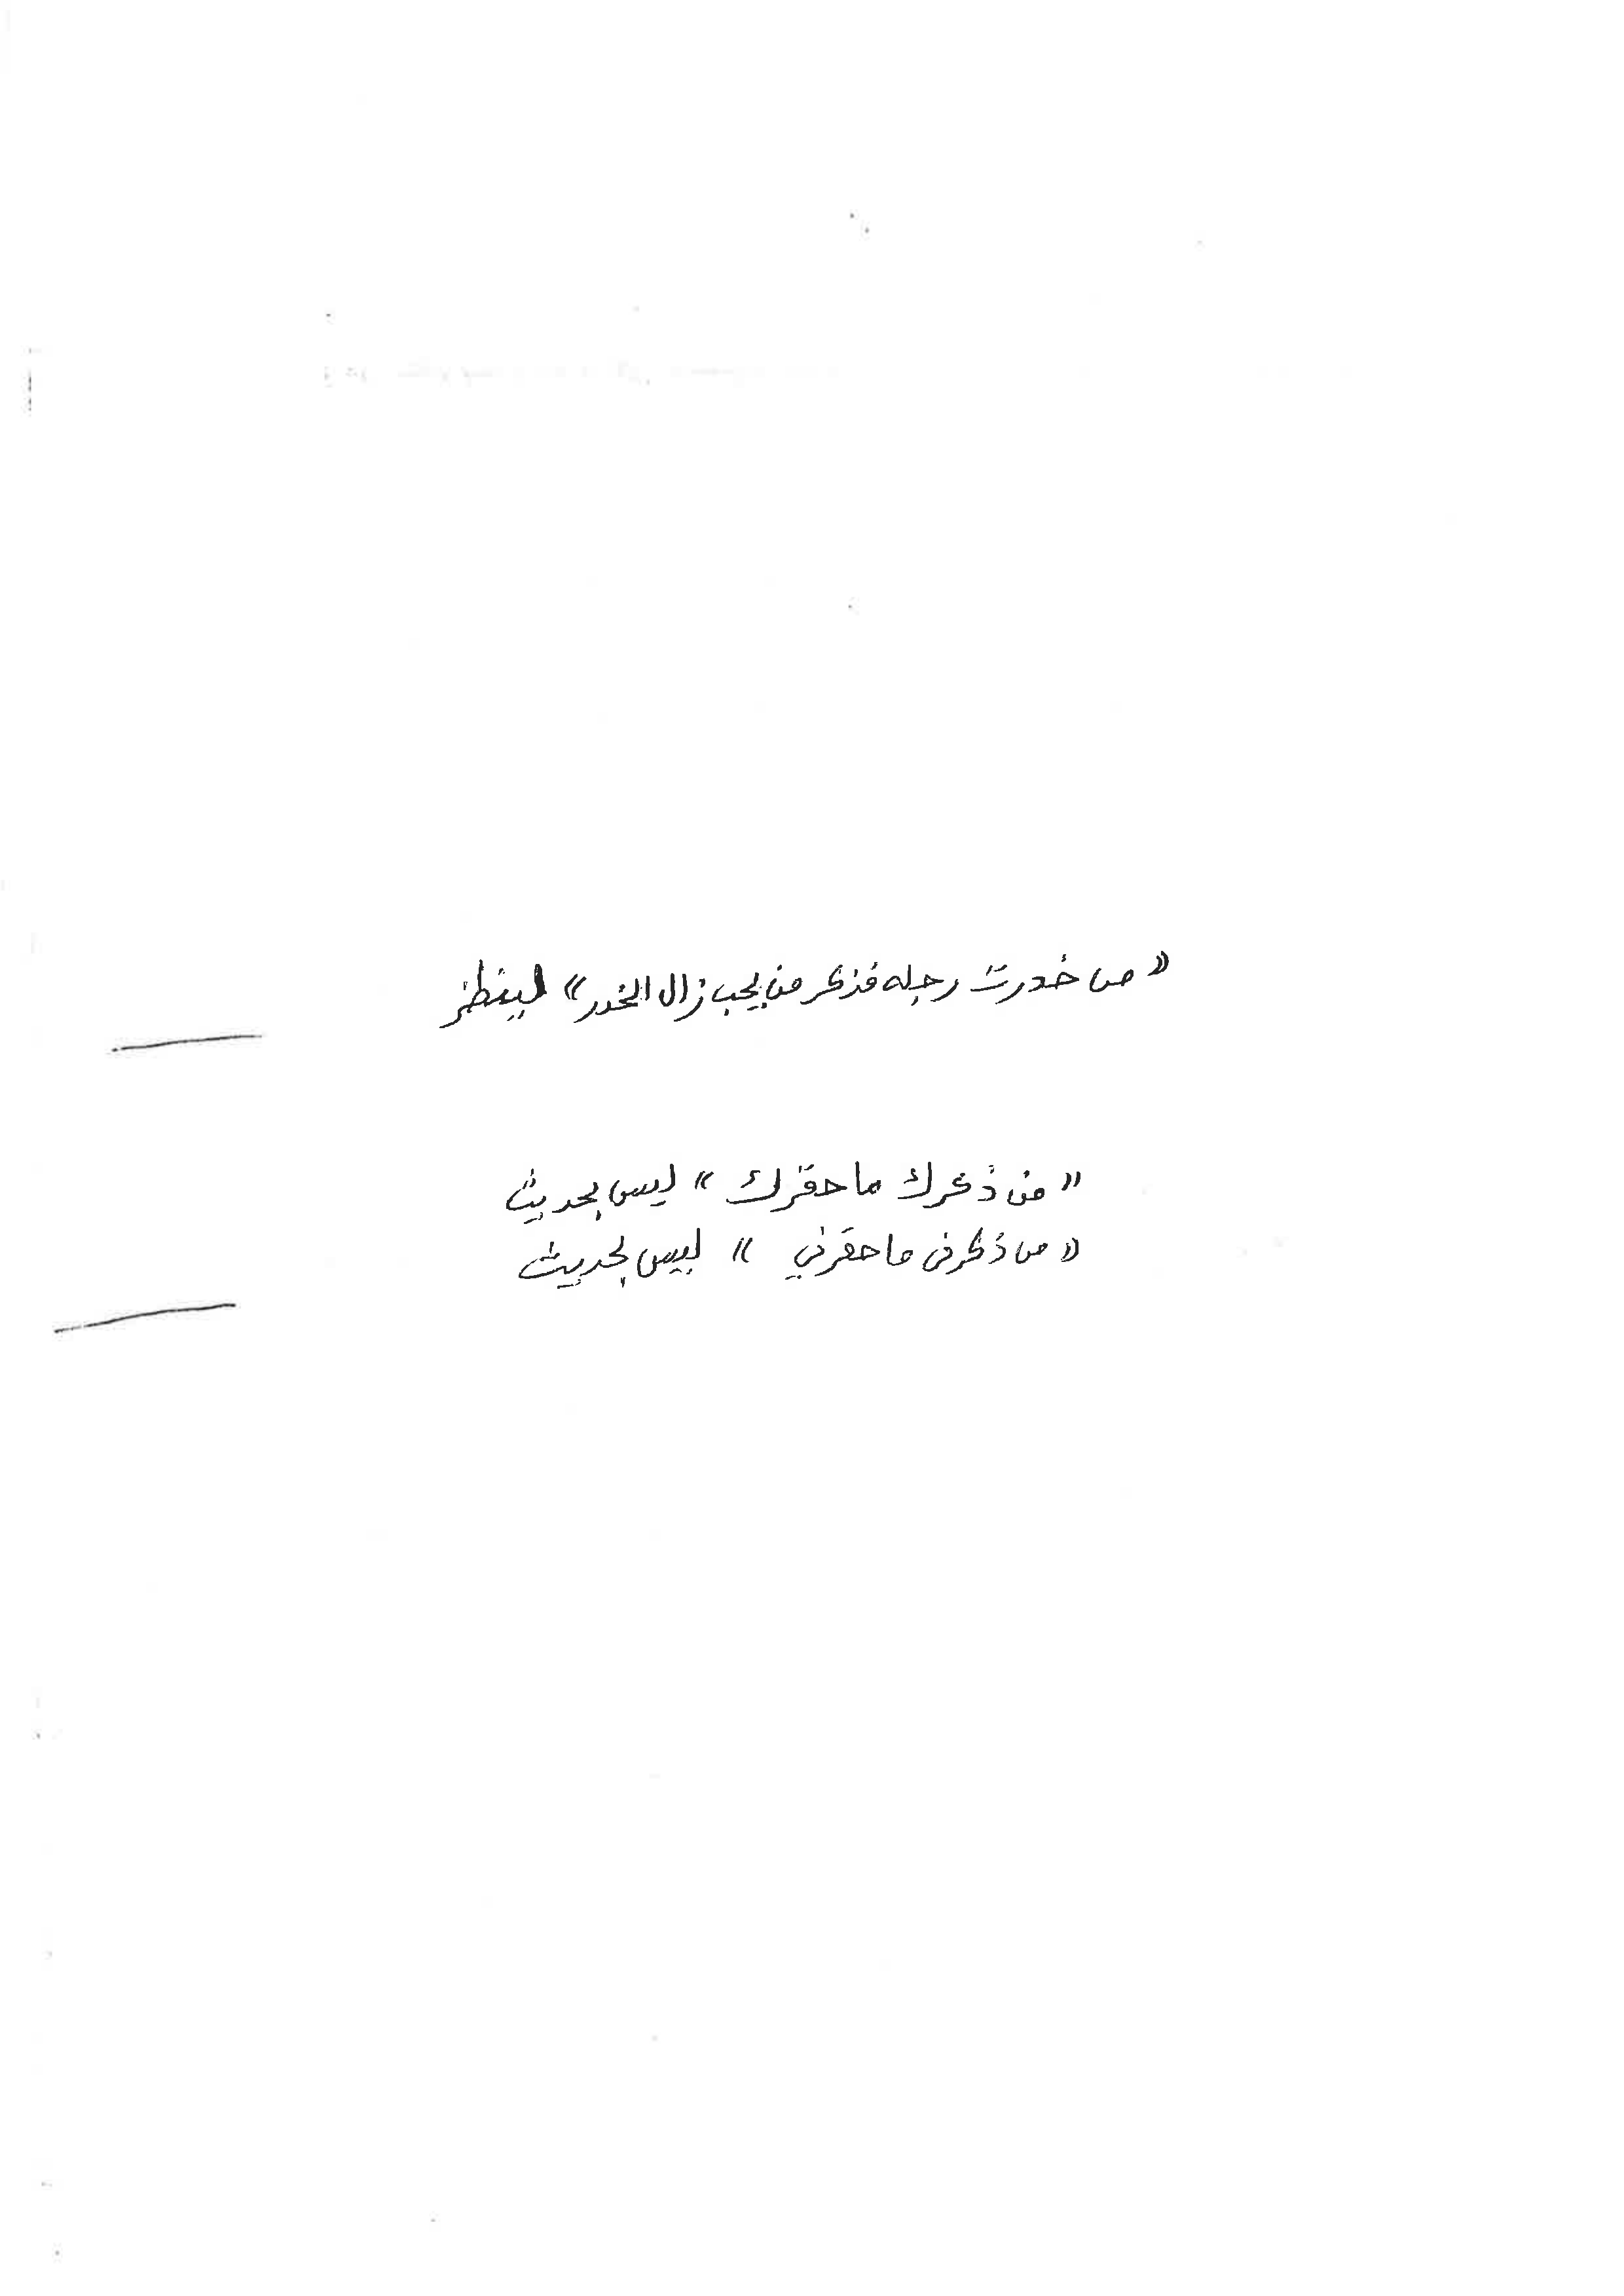 « من خدرت رجله فذكر من يحب زال الخدر » لينظر
« من ذكرك ما حقرك » ليس بحديث
« من ذكرني ما حقرني » ليس بحديث